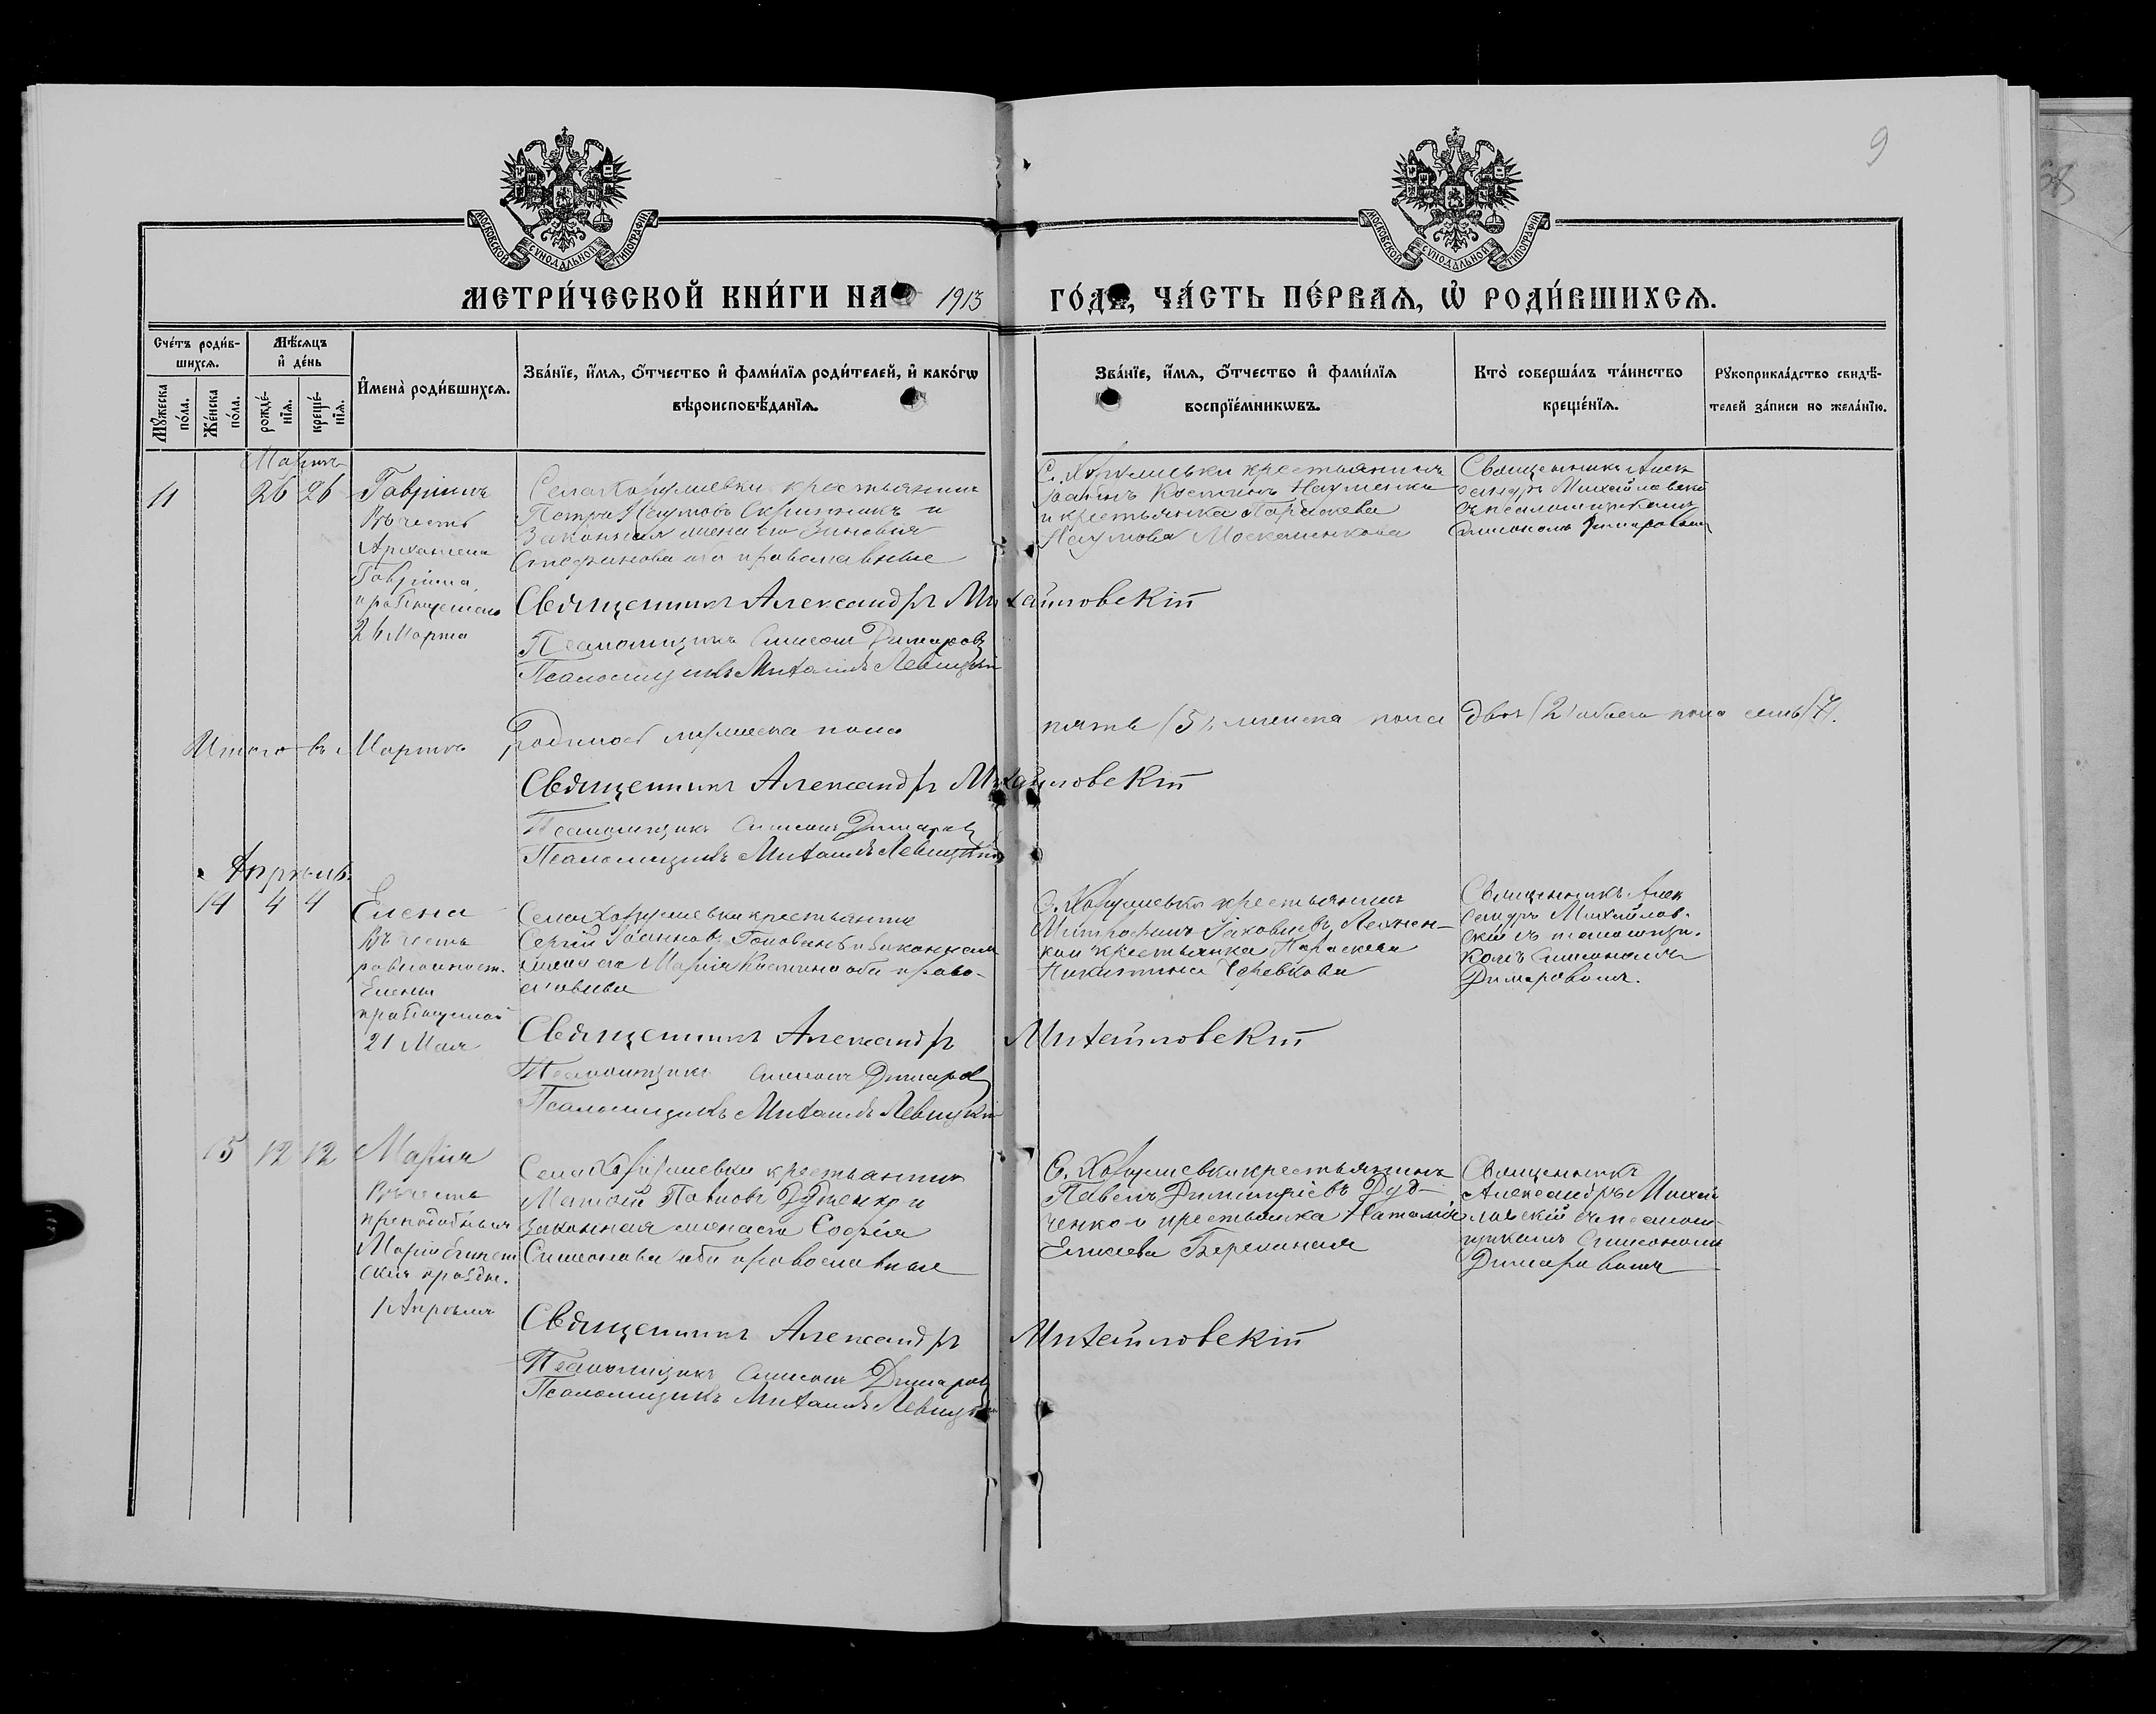 9
МОСКОВСКОЙ СѴНОДАЛЬНОЙ ТИПОГРАФІИ
МОСКОВСКОЙ СѴНОДАЛЬНОЙ ТИПОГРАФІИ
МЕТРИ́ЧЕСКОЙ КНИ́ГИ НА 1913 ГО́ДЪ, ЧА́СТЬ ПЕ́РВАѦ, Ѡ҆ РОДИ́ВШИХСѦ.
Сче́тъ роди́в-
шихсѧ.
Мꙋ́жеска по́ла.
Же́нска по́ла.
Мѣ́сѧцъ
и҆ де́нь
рожде́-
нїѧ.
креще́-
нїѧ.
И҆мена̀ роди́вшихсѧ.
Зва́нїе, и҆́мѧ, ѻ҆́тчество и҆ фами́лїѧ роди́телей, и҆ како́гѡ
вѣроисповѣ́данїѧ.
Зва́нїе, и҆́мѧ, ѻ҆́тчество и҆ фами́лїѧ
воспрїе́мникѡвъ.
Кто̀ соверша́лъ та́инство
креще́нїѧ.
Рꙋкоприкла́дство свидѣ́-
телей за́писи по жела́нїю.
Мартъ
11 26 26
Гавріилъ
Въ честь
Архангела
Гавріила
празднуемаго
26 Марта
крестьянинъ
Петръ Наумовъ Скрипникъ и
законная жена его Зиновія
Стефанова оба православные
крестьянинъ
Іоаннъ Костинъ Науменко
и крестьянка Параскева
Наумова Москаленкова
Священникъ Алек
сандръ Михайловскій
съ псаломщикомъ
Симономъ Димаровымъ
Священникъ Александръ Михайловскій
Псаломщикъ Симонъ Димаровъ
Псаломщикъ Михаилъ Левицкій
Итого въ Мартѣ родилось мужеска пола пять (5), женска пола двое (2) обоего пола семь (7).
Священникъ Александръ Михайловскій
Псаломщикъ Симонъ Димаровъ
Псаломщикъ Михаилъ Левицкій
Апрѣль
14 4 4
Елена
Въ честь
равноапост.
Елены
празднуемой
21 Мая
крестьянинъ
Сергій Іоанновъ и законная
жена его Марія Костина оба право-
славные
крестьянинъ
Митрофанъ Іаковлевъ
и крестьянка Параскева
Никитина
Священникъ Алек
сандръ Михайлов-
скій съ псаломщи-
комъ Симономъ
Димаровымъ.
Священникъ Александръ Михайловскій
Псаломщикъ Симонъ Димаровъ
Псаломщикъ Михаилъ Левицкій
15 12 12
Марія
Въ честь
преподобныя
Маріи Египет
скія праздн.
1 Апрѣля
крестьянинъ
Матѳей Павловъ и
законная жена его Софія
Симонова оба православные
крестьянинъ
Павелъ Димитріевъ Дуд-
ченко и крестьянка Наталія
Елисеева
Священникъ
Александръ Михай
ловскій съ псалом-
щикомъ Симономъ
Димаровымъ
Священникъ Александръ Михайловскій
Псаломщикъ Симонъ Димаровъ
Псаломщикъ Михаилъ Левицкій